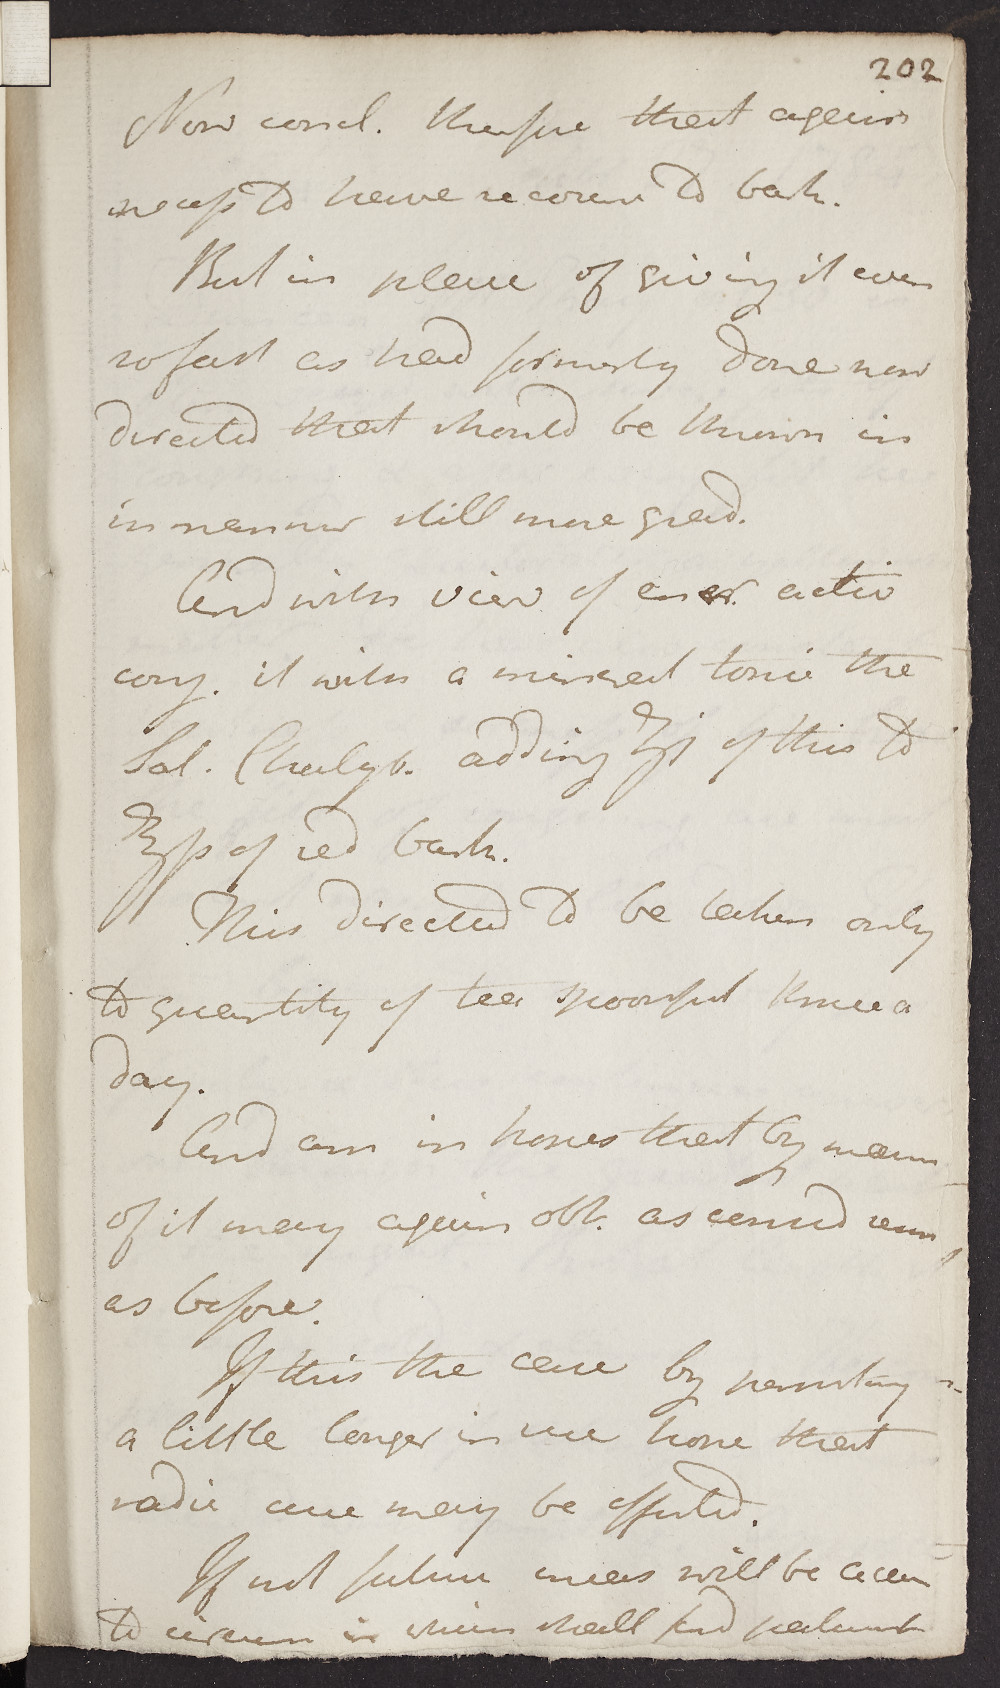 202
Now concl. therfore that again
necess to have recourse to bark.
But in place of giving it even
so fast as had formerly done now
directed that should be thrown in
in manner still more grad.
And with view of active
conj. it with a mineral tonic the
Sal. Chalyb. adding ʒj of this to
℥ss of red bark.
This directed to be taken only
to quantity of tea spoonful thrice a
day.
And am in hopes that by means
of it may again obt. as
as before.
If this the case by persisting
a little longer in use hope that
radic cure may be effected.
If not future meas will be accom
to circum in which shall find patient